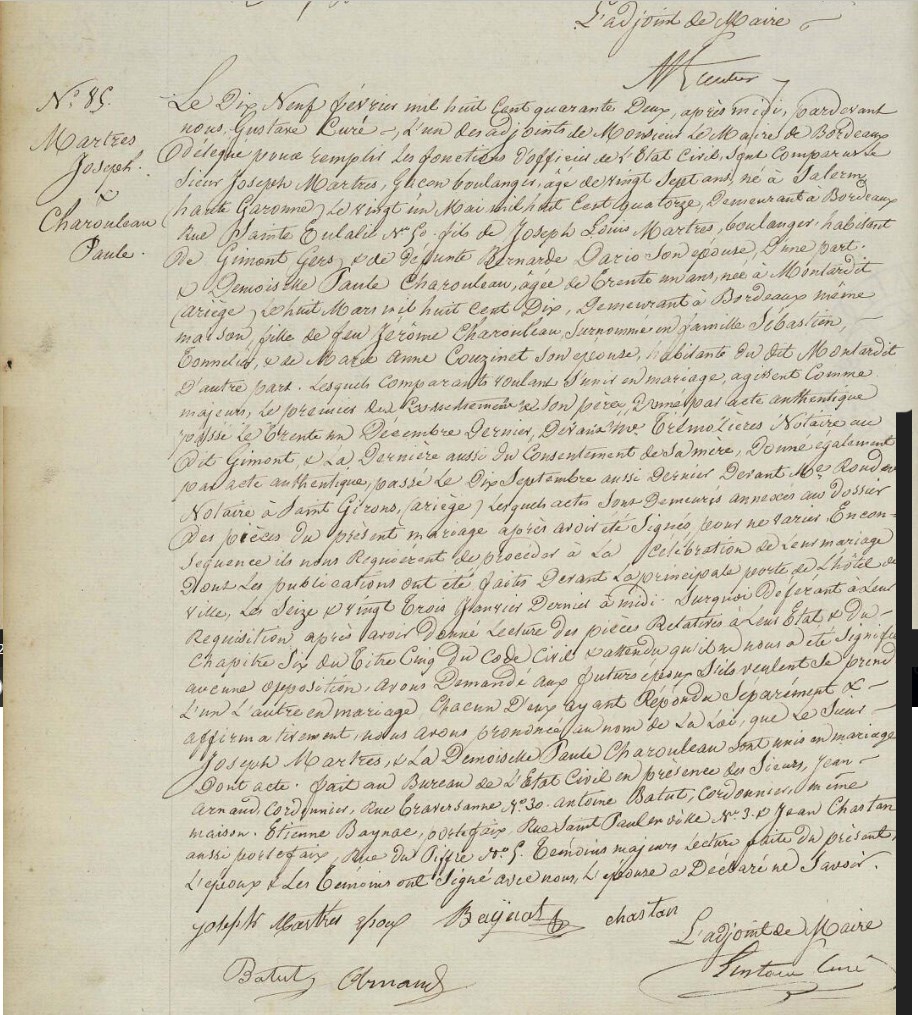 L'adjoint de Maire
N.° 85.
Martres
Joseph.
&
Charouleau
Paule.
Le Dix Neuf février mil huit Cent quarante Deux, après midi, pardevant
nous, Gustave Curé, L'un des adjoints de Monsieur Le Maire de Bordeaux
délégué pour remplir Les fonctions d'officier de L'Etat Civil, sont Comparus Le
Sieur Joseph Martres, Garçon boulanger, âgé de vingt Sept ans, né à Salerm
(haute Garonne) Le vingt un Mai mil huit Cent quatorze, Demeurant à Bordeaux
Rue Sainte Eulalie N.° 50. fils de Joseph Louis Martres, boulanger, habitant
De Gimont (Gers) & de défunte Bernarde Dario Son épouse, D'une part.
& Demoiselle Paule Charouleau, âgée de Trente un ans, née à Montardit
(ariège) Le huit Mars mil huit Cent Dix, Demeurant à Bordeaux même
maison, fille de feu Jerôme Charouleau, Surnommé en famille Sébastien,
Tonnelier, & de Marie Anne Couzinet Son épouse, habitante du dit Montardit
D'autre part. Lesquels Comparants voulant s'unir en mariage, agissent Comme
majeurs, Le premier du Consentement de Son père, Donné par acte authentique
passé Le Trente un Décembre Dernier, Devant M.e Trémolières Notaire au
Dit Gimont, & La Dernière aussi du Consentement de Sa mère, Donné également
par acte authentique, passé Le Dix Septembre aussi Dernier Devant Me
Notaire à Saint Girons, (ariège) Lesquels actes Sont Demeurés annexés au Dossier
Des pièces du présent mariage après avoir été Signés, pour ne varier. En con-
sequence ils nous Requièrent de procéder à La Célébration de Leur mariage
Dont Les publications ont été faites Devant La principale porte de L'hôtel de
ville, Les Seize & vingt Trois Janvier Dernier à midi. Surquoi Déférant à Leur
Requisition après avoir Donné Lecture des pièces Relatives à Leur Etat & du
Chapitre Six du Titre Cinq du Code Civil & attendu qu'il ne nous a été Signifié
aucune opposition, avons Demandé aux futurs époux S'ils veulent Se prend
L'un L'autre en mariage Chacun D'eux ayant Répondu Séparément &
affirmativement, nous avons prononcé au nom de La Loi, que Le Sieur
Joseph Martres, & La Demoiselle Paule Charouleau sont unis en mariage
Dont acte. fait au Bureau de L'Etat Civil en présence des Sieurs, Jean
Arnaud, Cordonnier, Rue Traversanne N.° 30. antoine Batut, Cordonnier, même
maison. Etienne Baynac, portefaix Rue Saint Paul en ville N.° 3. & Jean Chastan
aussi portefaix, Rue du Piffre N.° 5. Témoins majeurs Lecture faite du présent,
L'époux & Les Témoins ont Signé avec nous, L'épouse a Déclaré ne Savoir.
joseph Martres époux
chastan
L'adjoint de Maire
Batut Arnaud
Gustave Curé